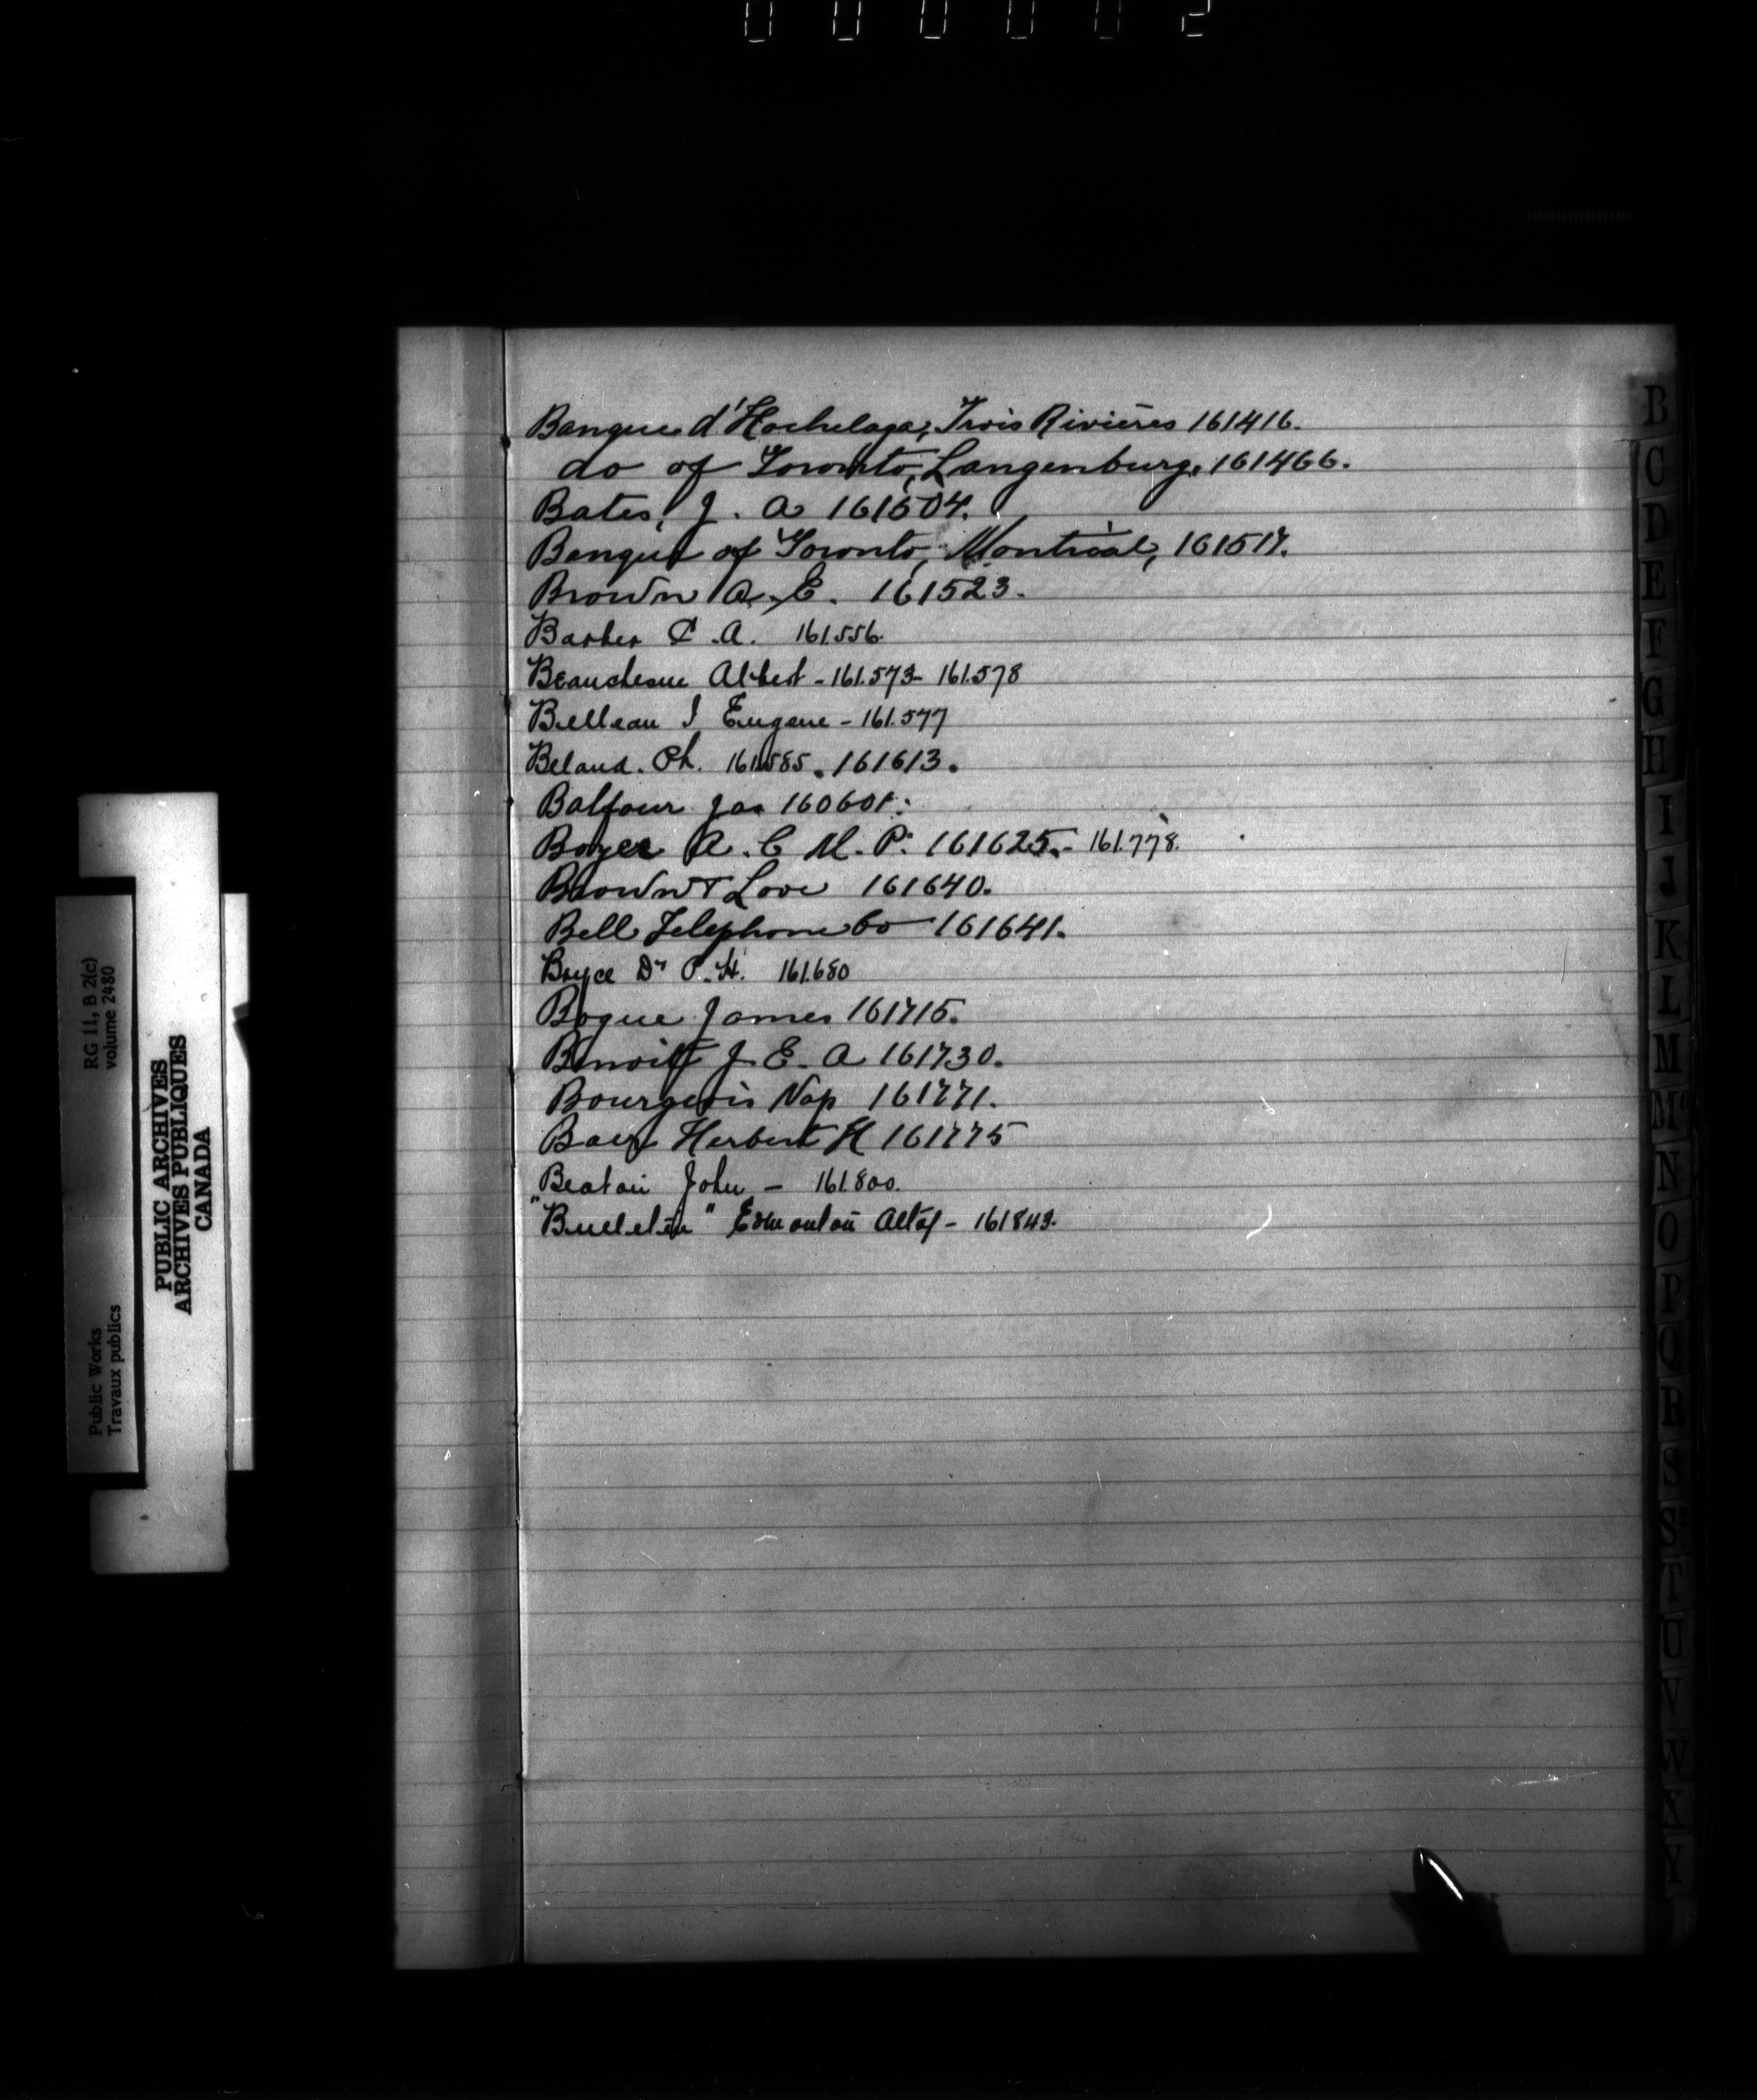 000002
Banque d'Hochelaga, Trois Rivières 161416.
do of Toronto, Langenburg, 161466.
Bates, J. A 161504.
Banque of Toronto, Montreal, 161517.
Brown A. E. 161523.
Barber C. A. 161.556
Beauchesne Albert - 161.573 - 161.578
Belleau J Eugene - 161.577
Beland. Ph. 161.585. 161613.
Balfour Jas 160601.
Boyer A. C M. P. 161625. - 161.778.
Brown & Love 161640.
Bell Telephone Co 161641.
Bryce Dr P. H. 161.680
Bogue James 161715.
Benoit J. E. A 161730.
Bourgeois Nap 161771.
Herbert H 161775
Beaton John - 161.800.
"Bulletin" Edmonton Alta - 161843.
Public Works
Travaux publics
RG 11, B 2(c)
volume 2480
PUBLIC ARCHIVES
ARCHIVES PUBLIQUES
CANADA
B
C
D
E
F
G
H
I
J
K
L
M
Mc
N
O
P
Q
R
S
S
T
U
V
W
X
Y